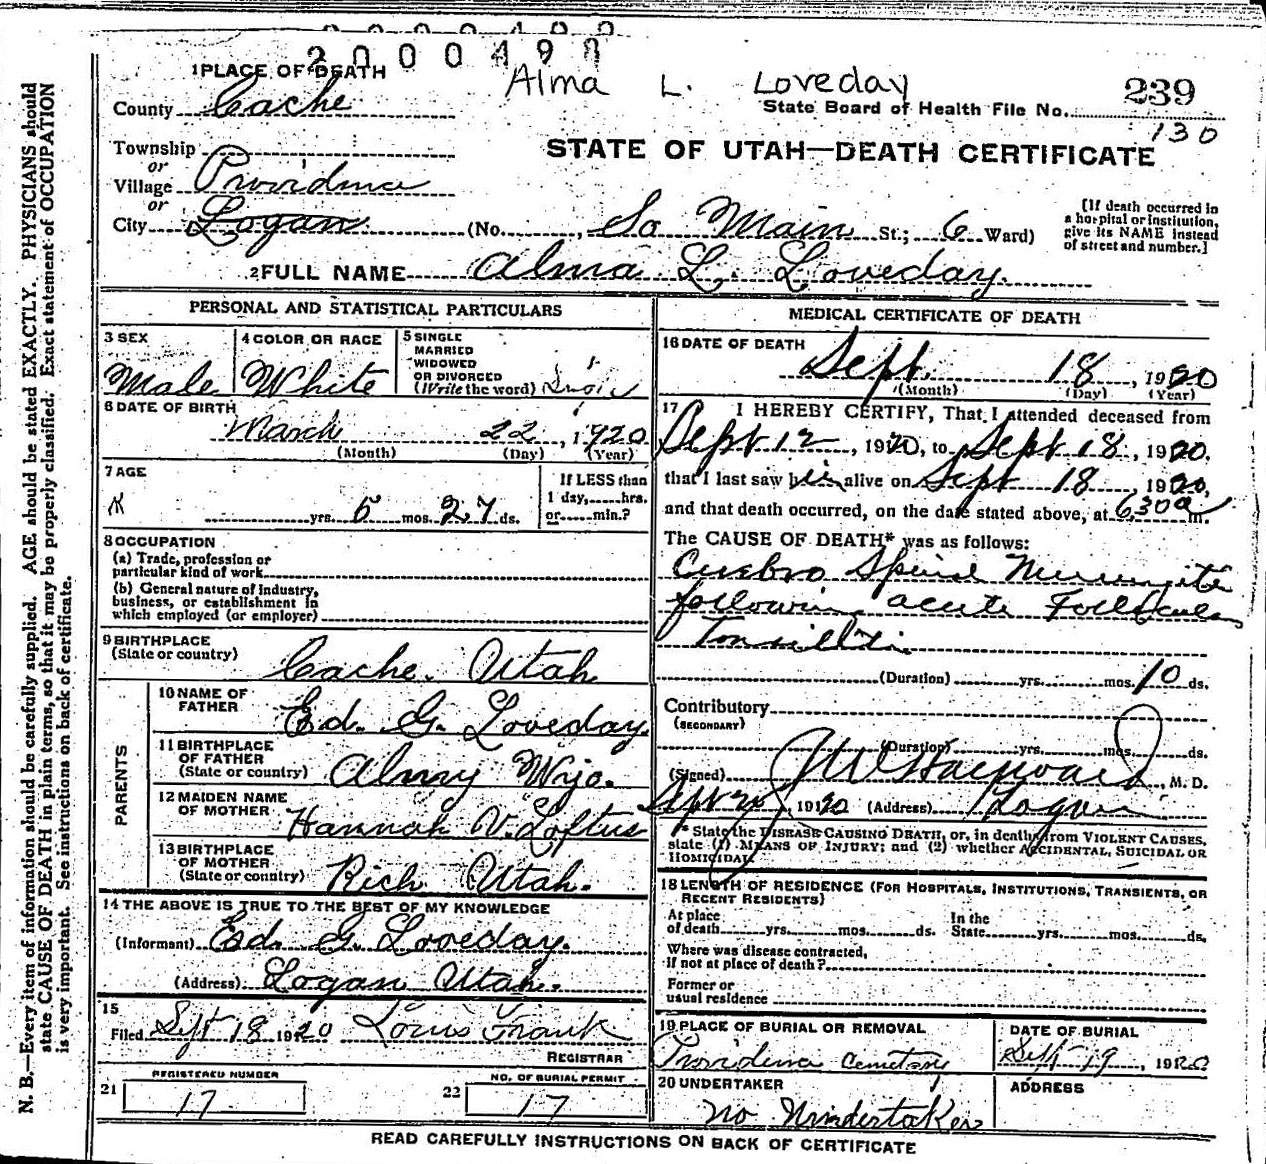 2000498
1 PLACE OF DEATH
Alma L. Loveday
239
County Cache
State Board of Health File No.
130
Township
or
STATE OF UTAH—DEATH CERTIFICATE
Village Providence
or
City Logan (No. , So Main St.; 6 Ward)
[If death occurred in a hospital or institution, give its NAME instead of street and number.]
2 FULL NAME Alma L. Loveday.
PERSONAL AND STATISTICAL PARTICULARS
3 SEX
Male
4 COLOR OR RACE
White
5 SINGLE
MARRIED
WIDOWED
OR DIVORCED
(Write the word)
6 DATE OF BIRTH
March 22, 1920
(Month) (Day) (Year)
7 AGE
yrs. 5 mos. 27 ds.
If LESS than
1 day, hrs.
or min.?
8 OCCUPATION
(a) Trade, profession or
particular kind of work
(b) General nature of industry,
business, or establishment in
which employed (or employer)
9 BIRTHPLACE
(State or country)
Cache. Utah
PARENTS
10 NAME OF
FATHER
Ed. G. Loveday.
11 BIRTHPLACE
OF FATHER
(State or country)
Almy Wyo.
12 MAIDEN NAME
OF MOTHER
Hannah V. Loftus
13 BIRTHPLACE
OF MOTHER
(State or country)
Rich Utah.
14 THE ABOVE IS TRUE TO THE BEST OF MY KNOWLEDGE
(Informant) Ed. G. Loveday.
(Address) Logan Utah.
15
Filed Sept 18 1920 Louis Frank
REGISTRAR
REGISTERED NUMBER
21 17
NO. OF BURIAL PERMIT
22 17
MEDICAL CERTIFICATE OF DEATH
16 DATE OF DEATH
Sept. 18, 1920
(Month) (Day) (Year)
17 I HEREBY CERTIFY, That I attended deceased from
Sept 12, 1920, to Sept 18, 1920.
that I last saw him alive on Sept 18, 1920,
and that death occurred, on the date stated above, at 6,30 a m.
The CAUSE OF DEATH* was as follows:
Cerebro Spinal Meningitis
following acute Follicular
Tonsillitis
(Duration) yrs. mos. 10 ds.
Contributory
(SECONDARY)
(Duration) yrs. mos. ds.
(Signed) J W Hayward, M. D.
1920 (Address) Logan
* State the DISEASE CAUSING DEATH, or, in deaths from VIOLENT CAUSES,
state (1) MEANS OF INJURY; and (2) whether ACCIDENTAL, SUICIDAL OR
HOMICIDAL.
18 LENGTH OF RESIDENCE (FOR HOSPITALS, INSTITUTIONS, TRANSIENTS, OR
RECENT RESIDENTS)
At place
of death yrs. mos. ds.
In the
State yrs. mos. ds.
Where was disease contracted,
if not at place of death?
Former or
usual residence
19 PLACE OF BURIAL OR REMOVAL
Providence Cemetery
DATE OF BURIAL
Sept 19, 1920
20 UNDERTAKER
No Undertaker
ADDRESS
READ CAREFULLY INSTRUCTIONS ON BACK OF CERTIFICATE
N. B.—Every item of information should be carefully supplied. AGE should be stated EXACTLY. PHYSICIANS should
state CAUSE OF DEATH in plain terms, so that it may be properly classified. Exact statement of OCCUPATION
is very important. See instructions on back of certificate.